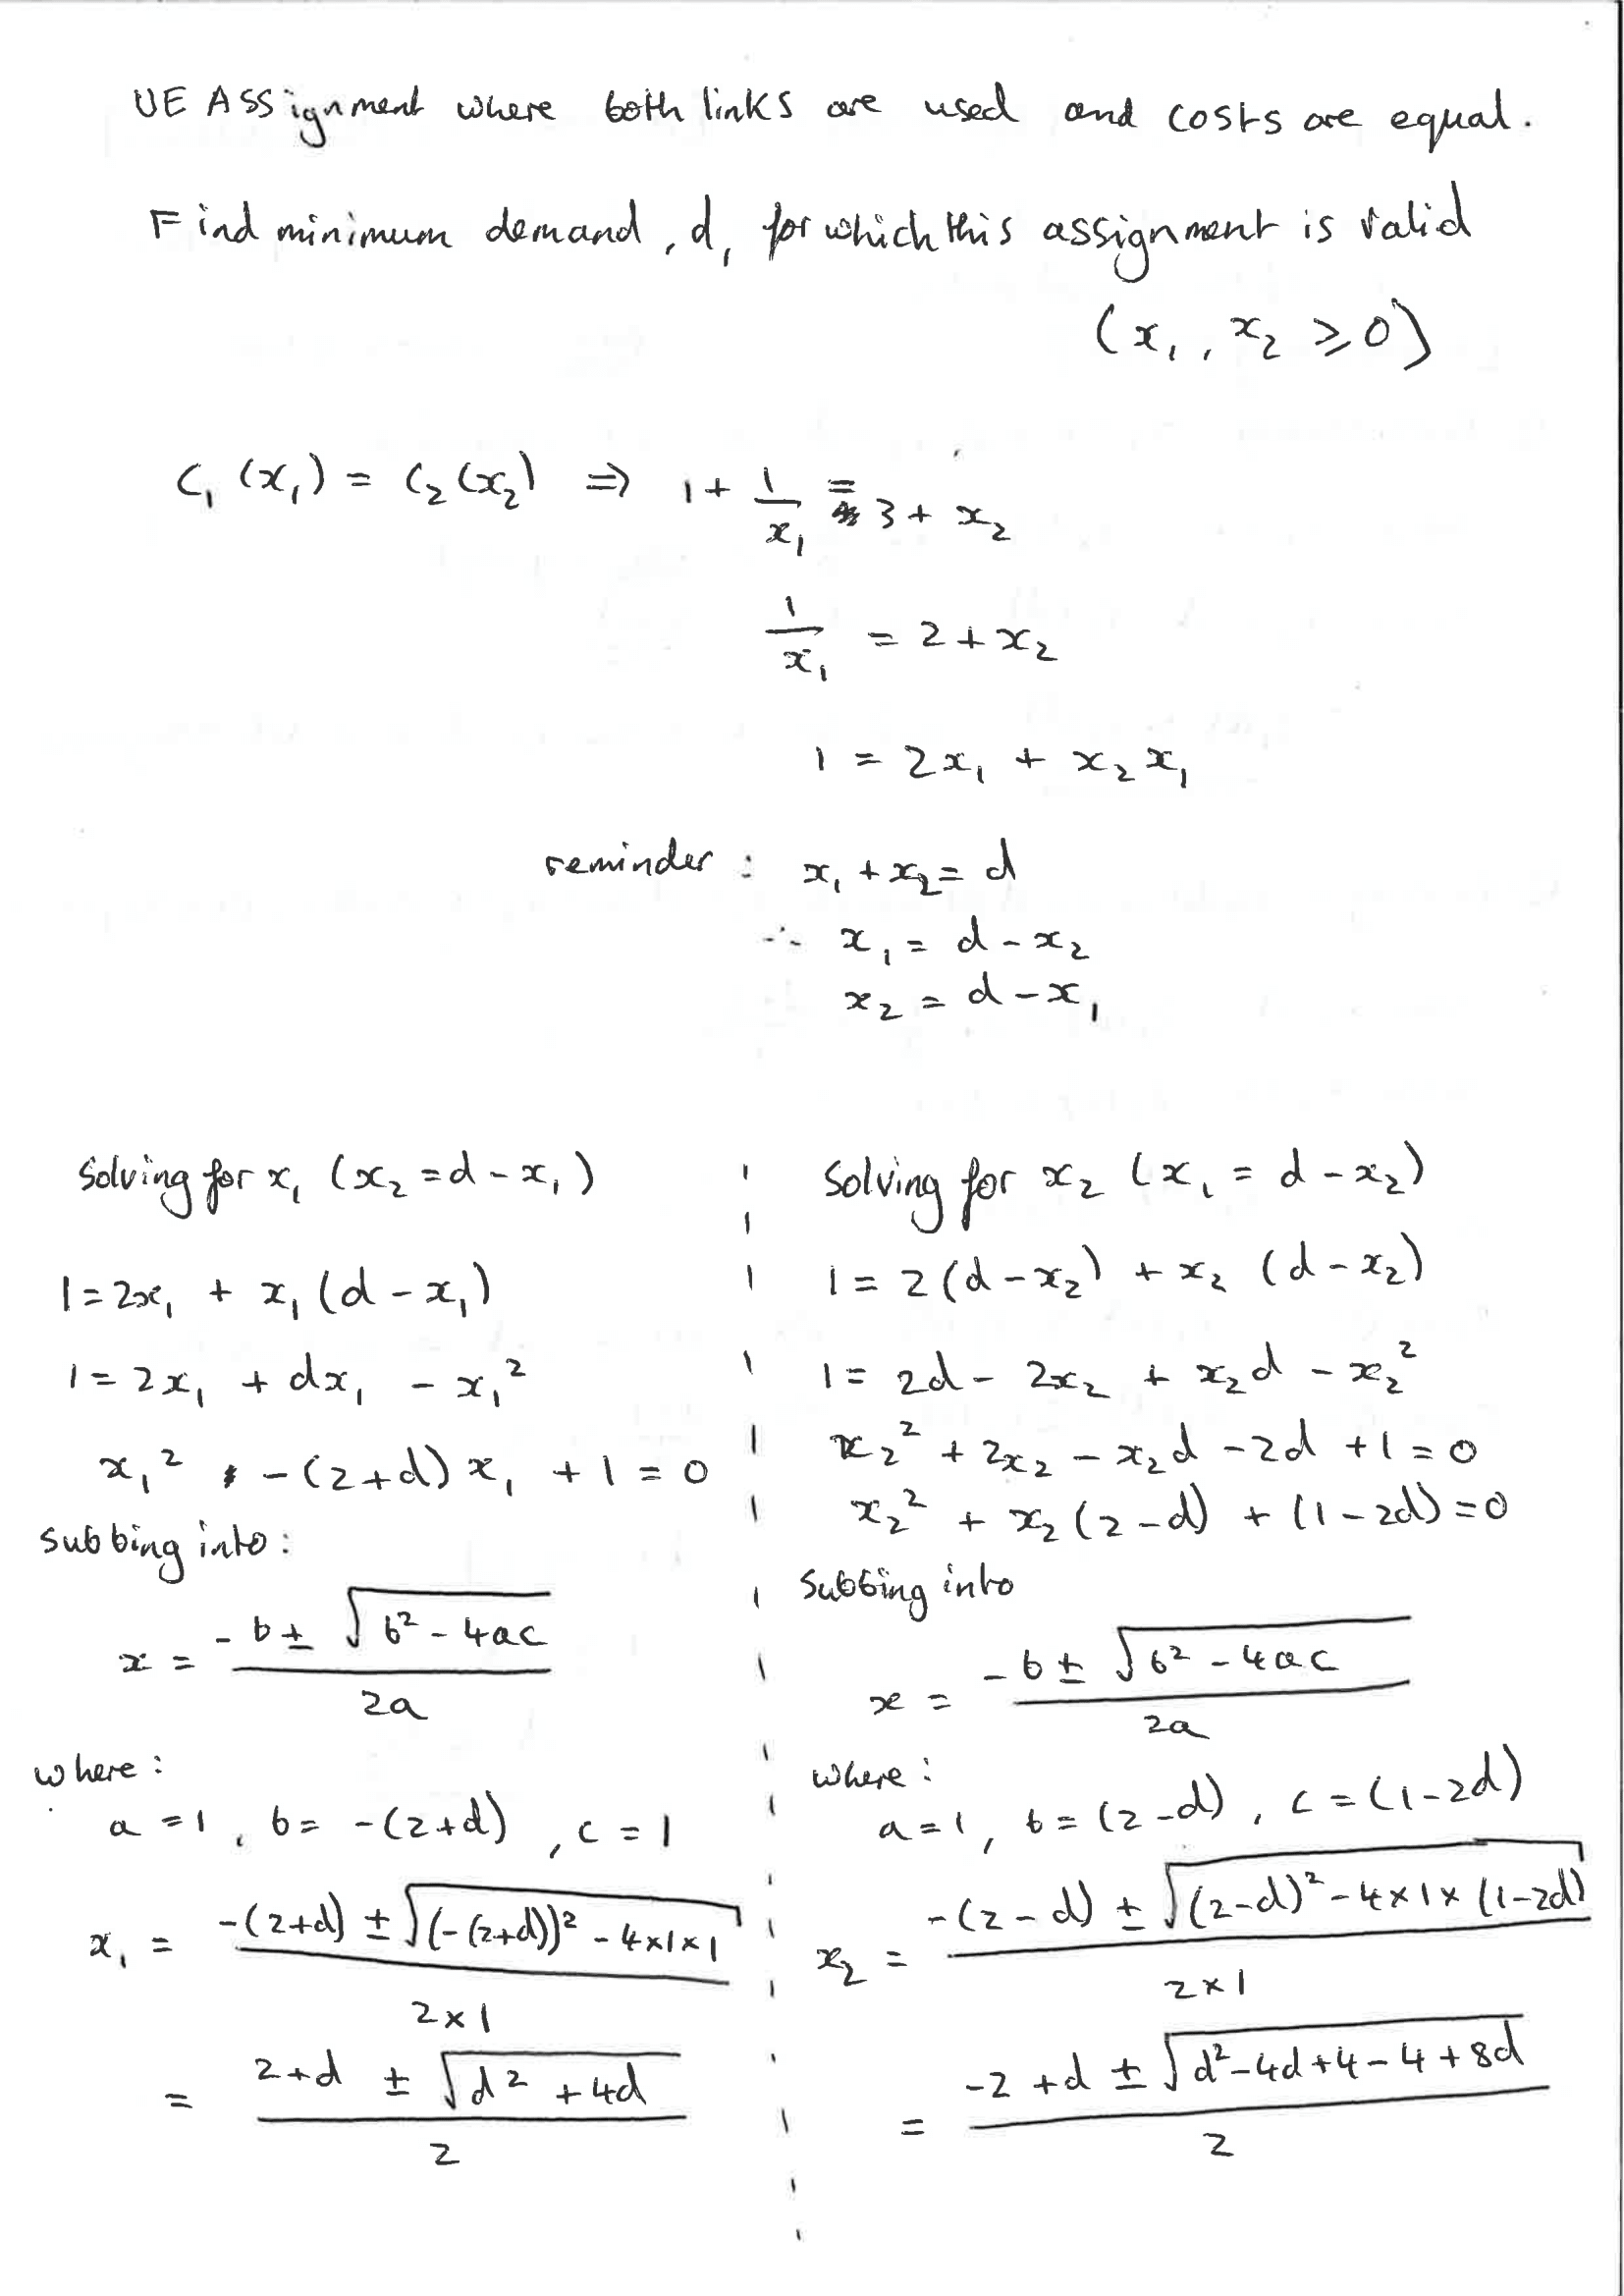 UE Assignment where both links are used and costs are equal.
Find minimum demand, d, for which this assignment is valid
(x₁, x₂ ≥ 0)
C₁(x₁) = C₂(x₂) ⇒ 1 + 1/x₁ = 3 + x₂
1/x₁ = 2 + x₂
1 = 2x₁ + x₂x₁
reminder : x₁ + x₂ = d
∴ x₁ = d - x₂
x₂ = d - x₁
Solving for x₁ (x₂ = d - x₁)
1 = 2x₁ + x₁(d - x₁)
1 = 2x₁ + dx₁ - x₁²
x₁² - (2+d)x₁ + 1 = 0
subbing into:
x = (-b ± √(b² - 4ac))/2a
where:
a = 1, b = -(2+d), c = 1
x₁ = (-(2+d) ± √((-(2+d))² - 4×1×1))/(2×1)
= (2+d ± √(d² + 4d))/2
Solving for x₂ (x₁ = d - x₂)
1 = 2(d - x₂) + x₂(d - x₂)
1 = 2d - 2x₂ + x₂d - x₂²
x₂² + 2x₂ - x₂d - 2d + 1 = 0
x₂² + x₂(2-d) + (1-2d) = 0
Subbing into
x = (-b ± √(b² - 4ac))/2a
where:
a = 1, b = (2-d), c = (1-2d)
x₂ = (-(2-d) ± √((2-d)² - 4×1×(1-2d)))/(2×1)
= (-2+d ± √(d²-4d+4-4+8d))/2